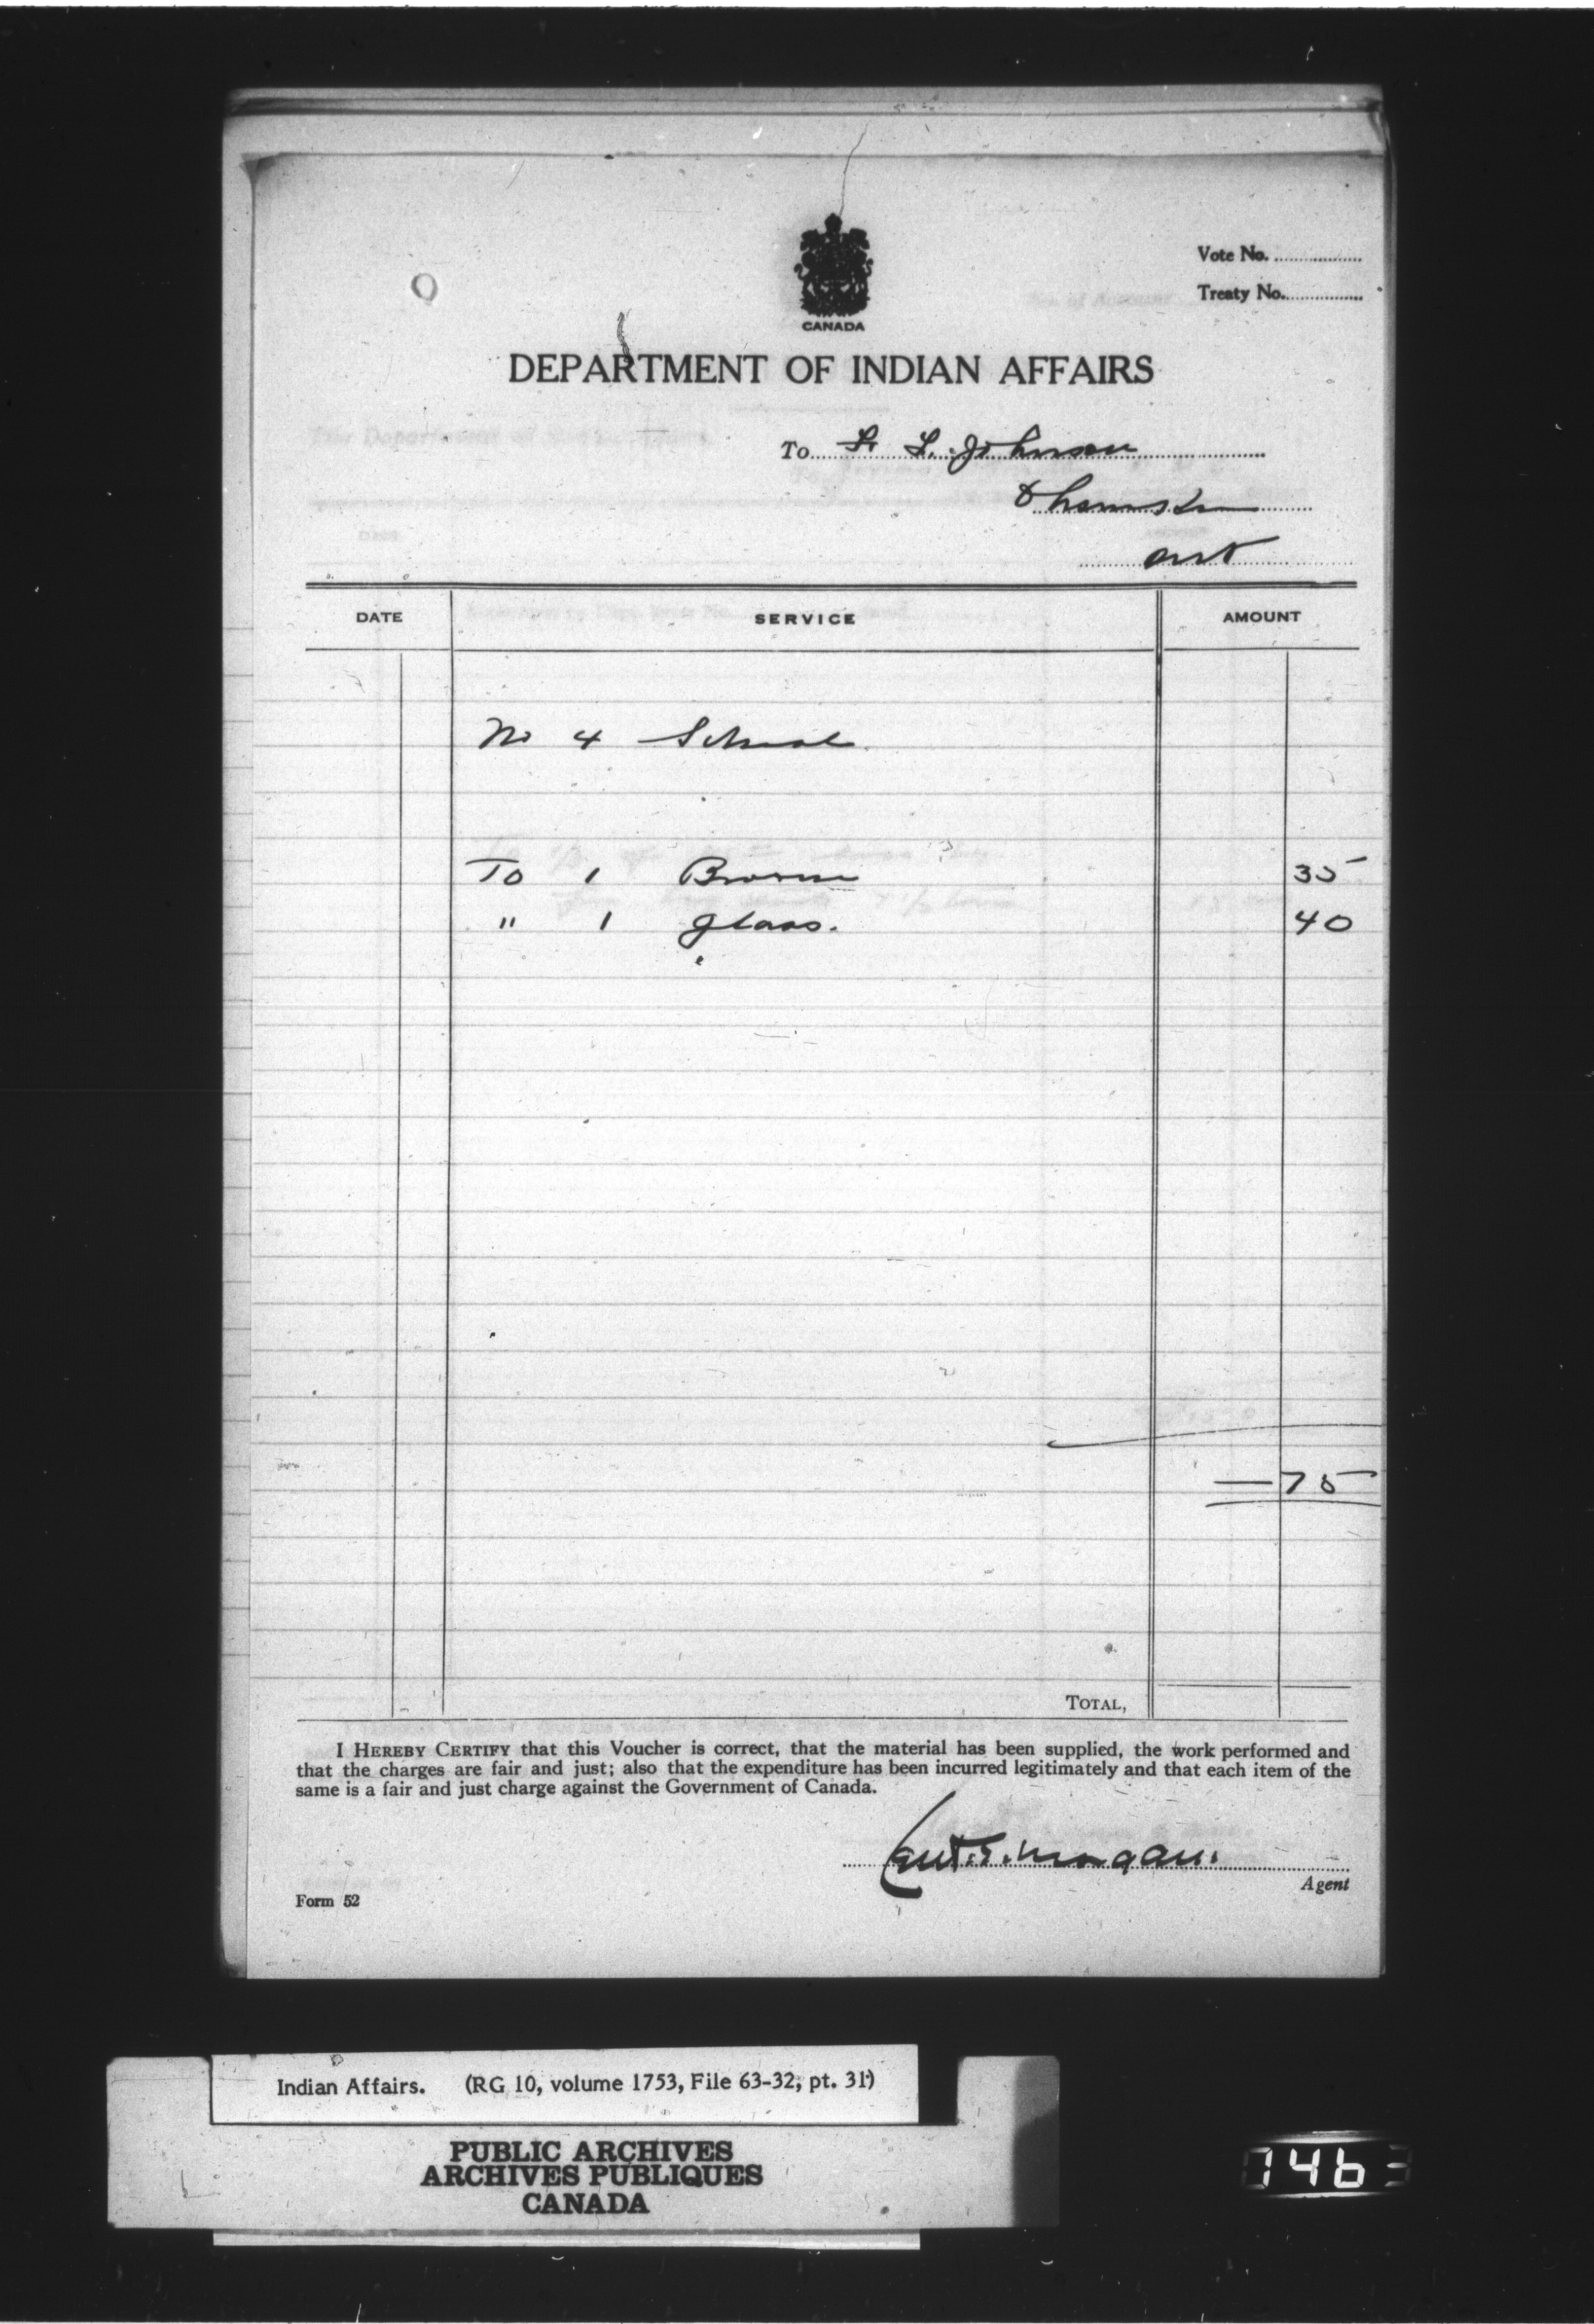 CANADA
Vote No.
Treaty No.
DEPARTMENT OF INDIAN AFFAIRS
To L. Johnson
Ohsweken
Ont
DATE SERVICE AMOUNT
No 4 School
To 1 Broom 35
" 1 glass. 40
— 75
TOTAL,
I HEREBY CERTIFY that this Voucher is correct, that the material has been supplied, the work performed and
that the charges are fair and just; also that the expenditure has been incurred legitimately and that each item of the
same is a fair and just charge against the Government of Canada.
Morgan.
Agent
Form 52
Indian Affairs. (RG 10, volume 1753, File 63-32, pt. 31)
PUBLIC ARCHIVES
ARCHIVES PUBLIQUES
CANADA